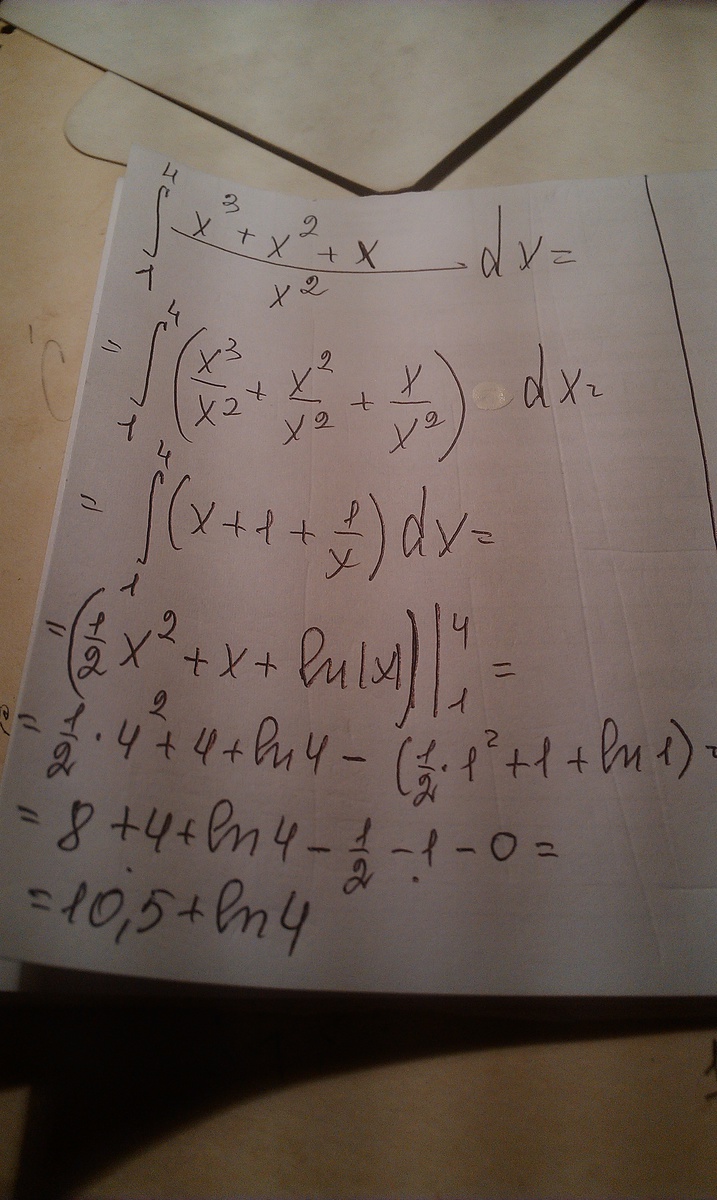 ∫₁⁴ (x³ + x² + x)/x² dx =
= ∫₁⁴ (x³/x² + x²/x² + x/x²) dx =
= ∫₁⁴ (x + 1 + 1/x) dx =
= (1/2 x² + x + ln|x|)|₁⁴ =
= 1/2 · 4² + 4 + ln 4 − (1/2 · 1² + 1 + ln 1) =
= 8 + 4 + ln 4 − 1/2 − 1 − 0 =
= 10,5 + ln 4